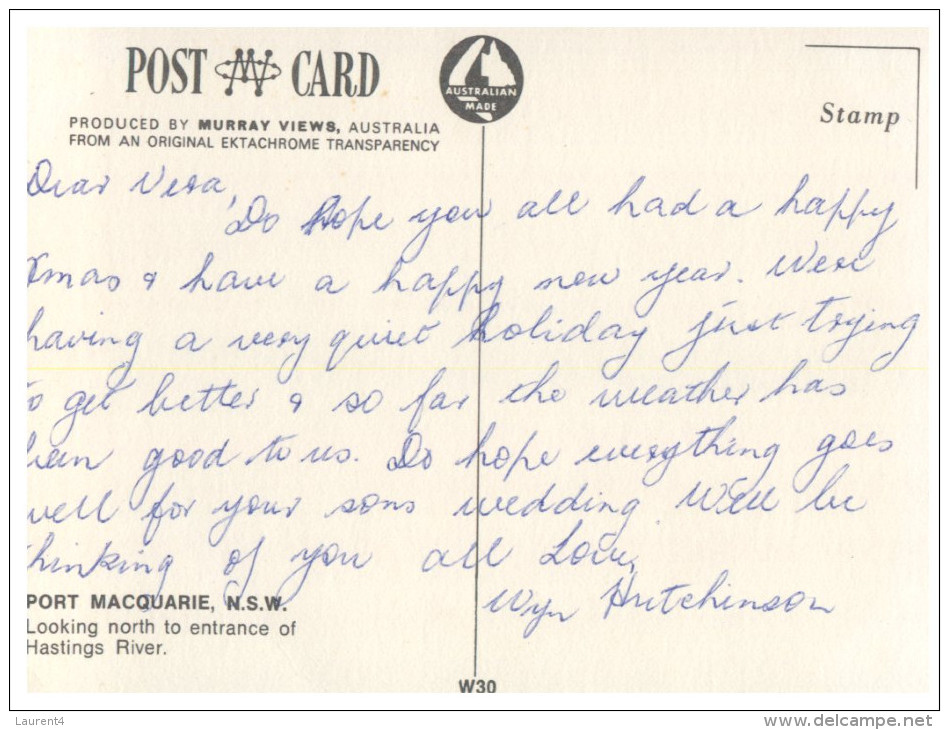 POST CARD
AUSTRALIAN
MADE
Stamp
PRODUCED BY MURRAY VIEWS, AUSTRALIA
FROM AN ORIGINAL EKTACHROME TRANSPARENCY
Dear Vera,
Do hope you all had a happy
Xmas & have a happy new year. Were
having a very quiet holiday just trying
to get better & so far the weather has
been good to us. Do hope everything goes
well for your sons wedding. Will be
thinking of you all Love,
Wyn Hutchinson
PORT MACQUARIE, N.S.W.
Looking north to entrance of
Hastings River.
W30
Laurent4
www.delcampe.net